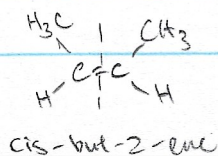 H₃C CH₃
C=C
H H
cis-but-2-ene